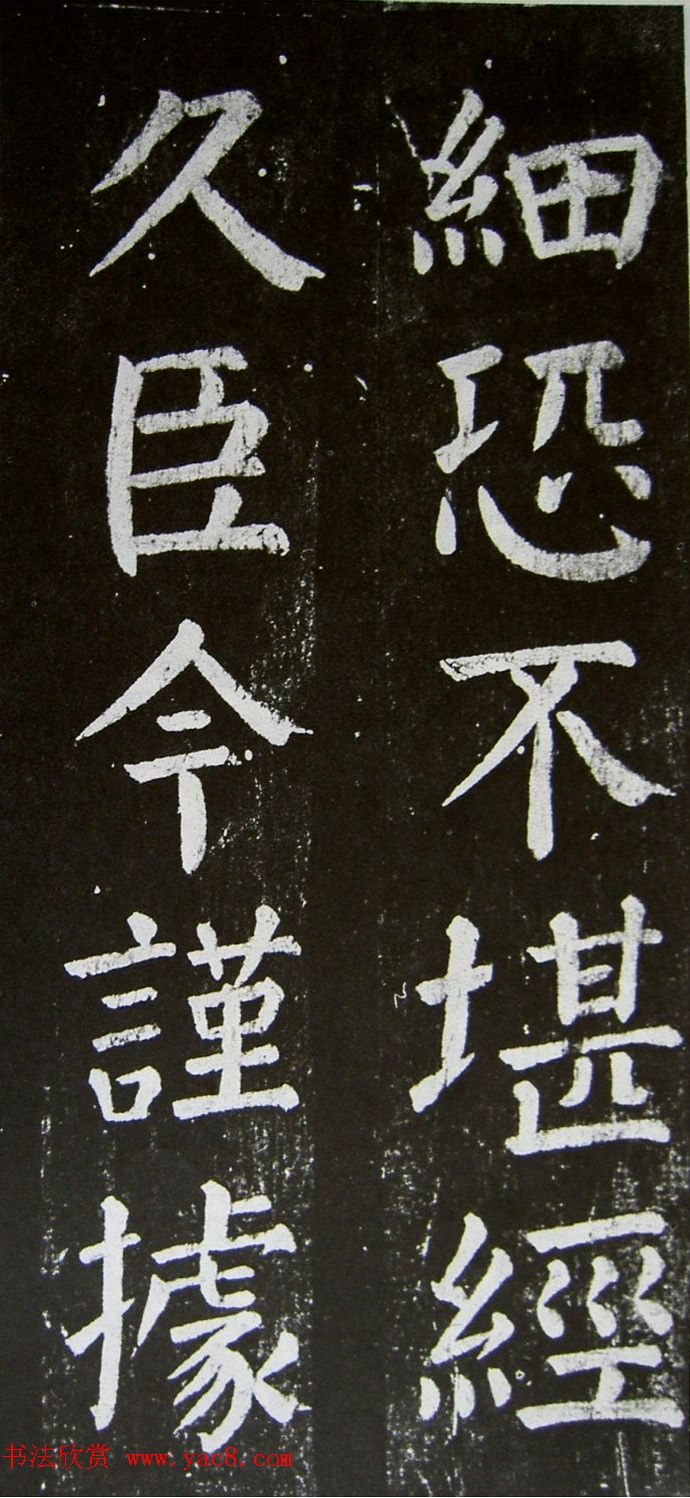 細恐不堪經
久臣今謹據
书法欣赏 www.yac8.com